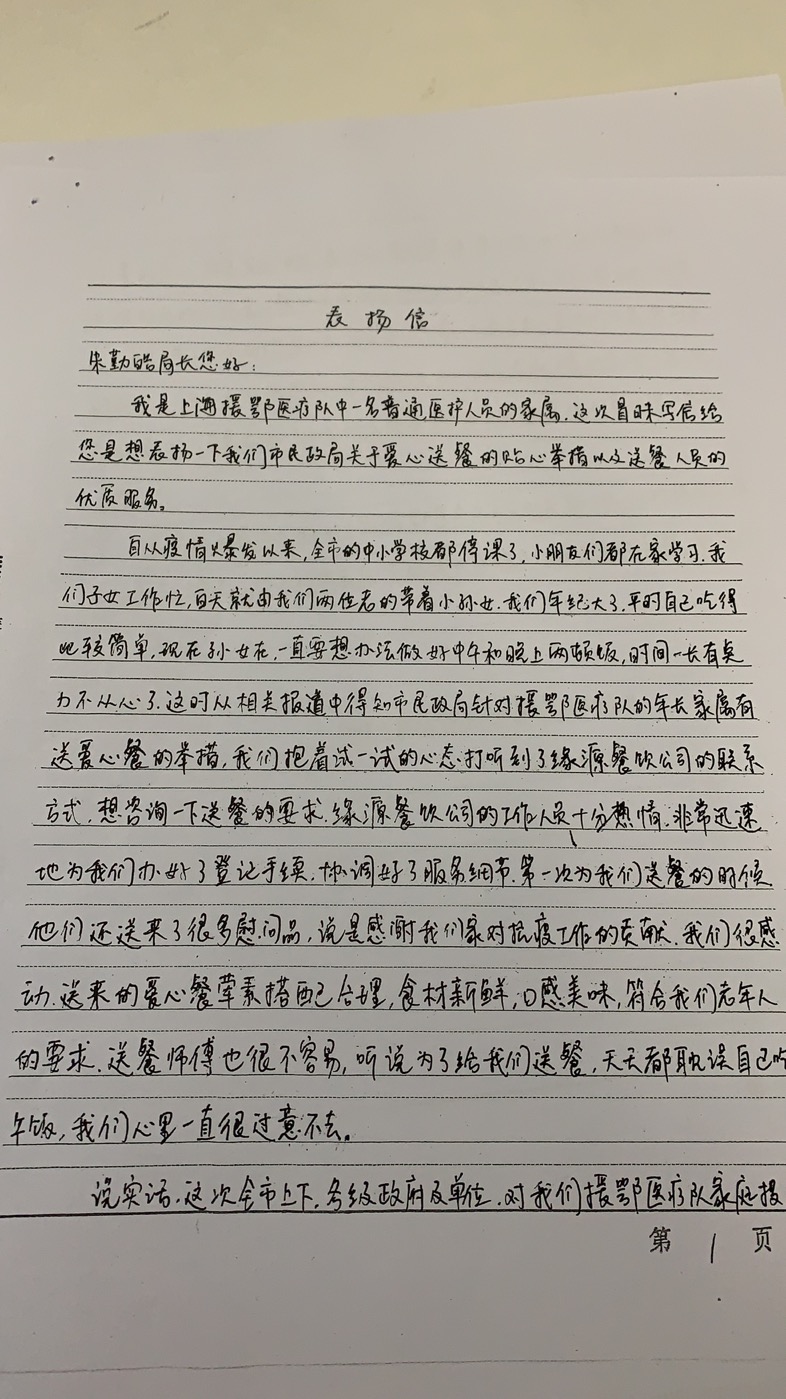 表扬信
朱勤皓局长您好:
我是上海援鄂医疗队中一名普通医护人员的家属,这次冒昧写信给
您是想表扬一下我们市民政局关于爱心送餐的贴心举措以及送餐人员的
优质服务。
自从疫情爆发以来,全市的中小学校都停课了,小朋友们都在家学习.我
们子女工作忙,白天就由我们两位老的带着小孙女.我们年纪大了.平时自己吃得
比较简单,现在孙女在,一直要想办法做好中午和晚上两顿饭,时间一长有点
力不从心了.这时从相关报道中得知市民政局针对援鄂医疗队的年长家属有
送爱心餐的举措,我们抱着试一试的心态打听到了缘源餐饮公司的联系
方式,想咨询一下送餐的要求.缘源餐饮公司的工作人员十分热情.非常迅速
地为我们办好了登记手续.协调好了服务细节.第一次为我们送餐的时候
他们还送来了很多慰问品,说是感谢我们家对抗疫工作的贡献.我们很感
动.送来的爱心餐荤素搭配合理,食材新鲜,口感美味,符合我们老年人
的要求.送餐师傅也很不容易,听说为了给我们送餐,天天都耽误自己吃
午饭,我们心里一直很过意不去。
说实话.这次全市上下.各级政府及单位.对我们援鄂医疗队家庭提
第 1 页